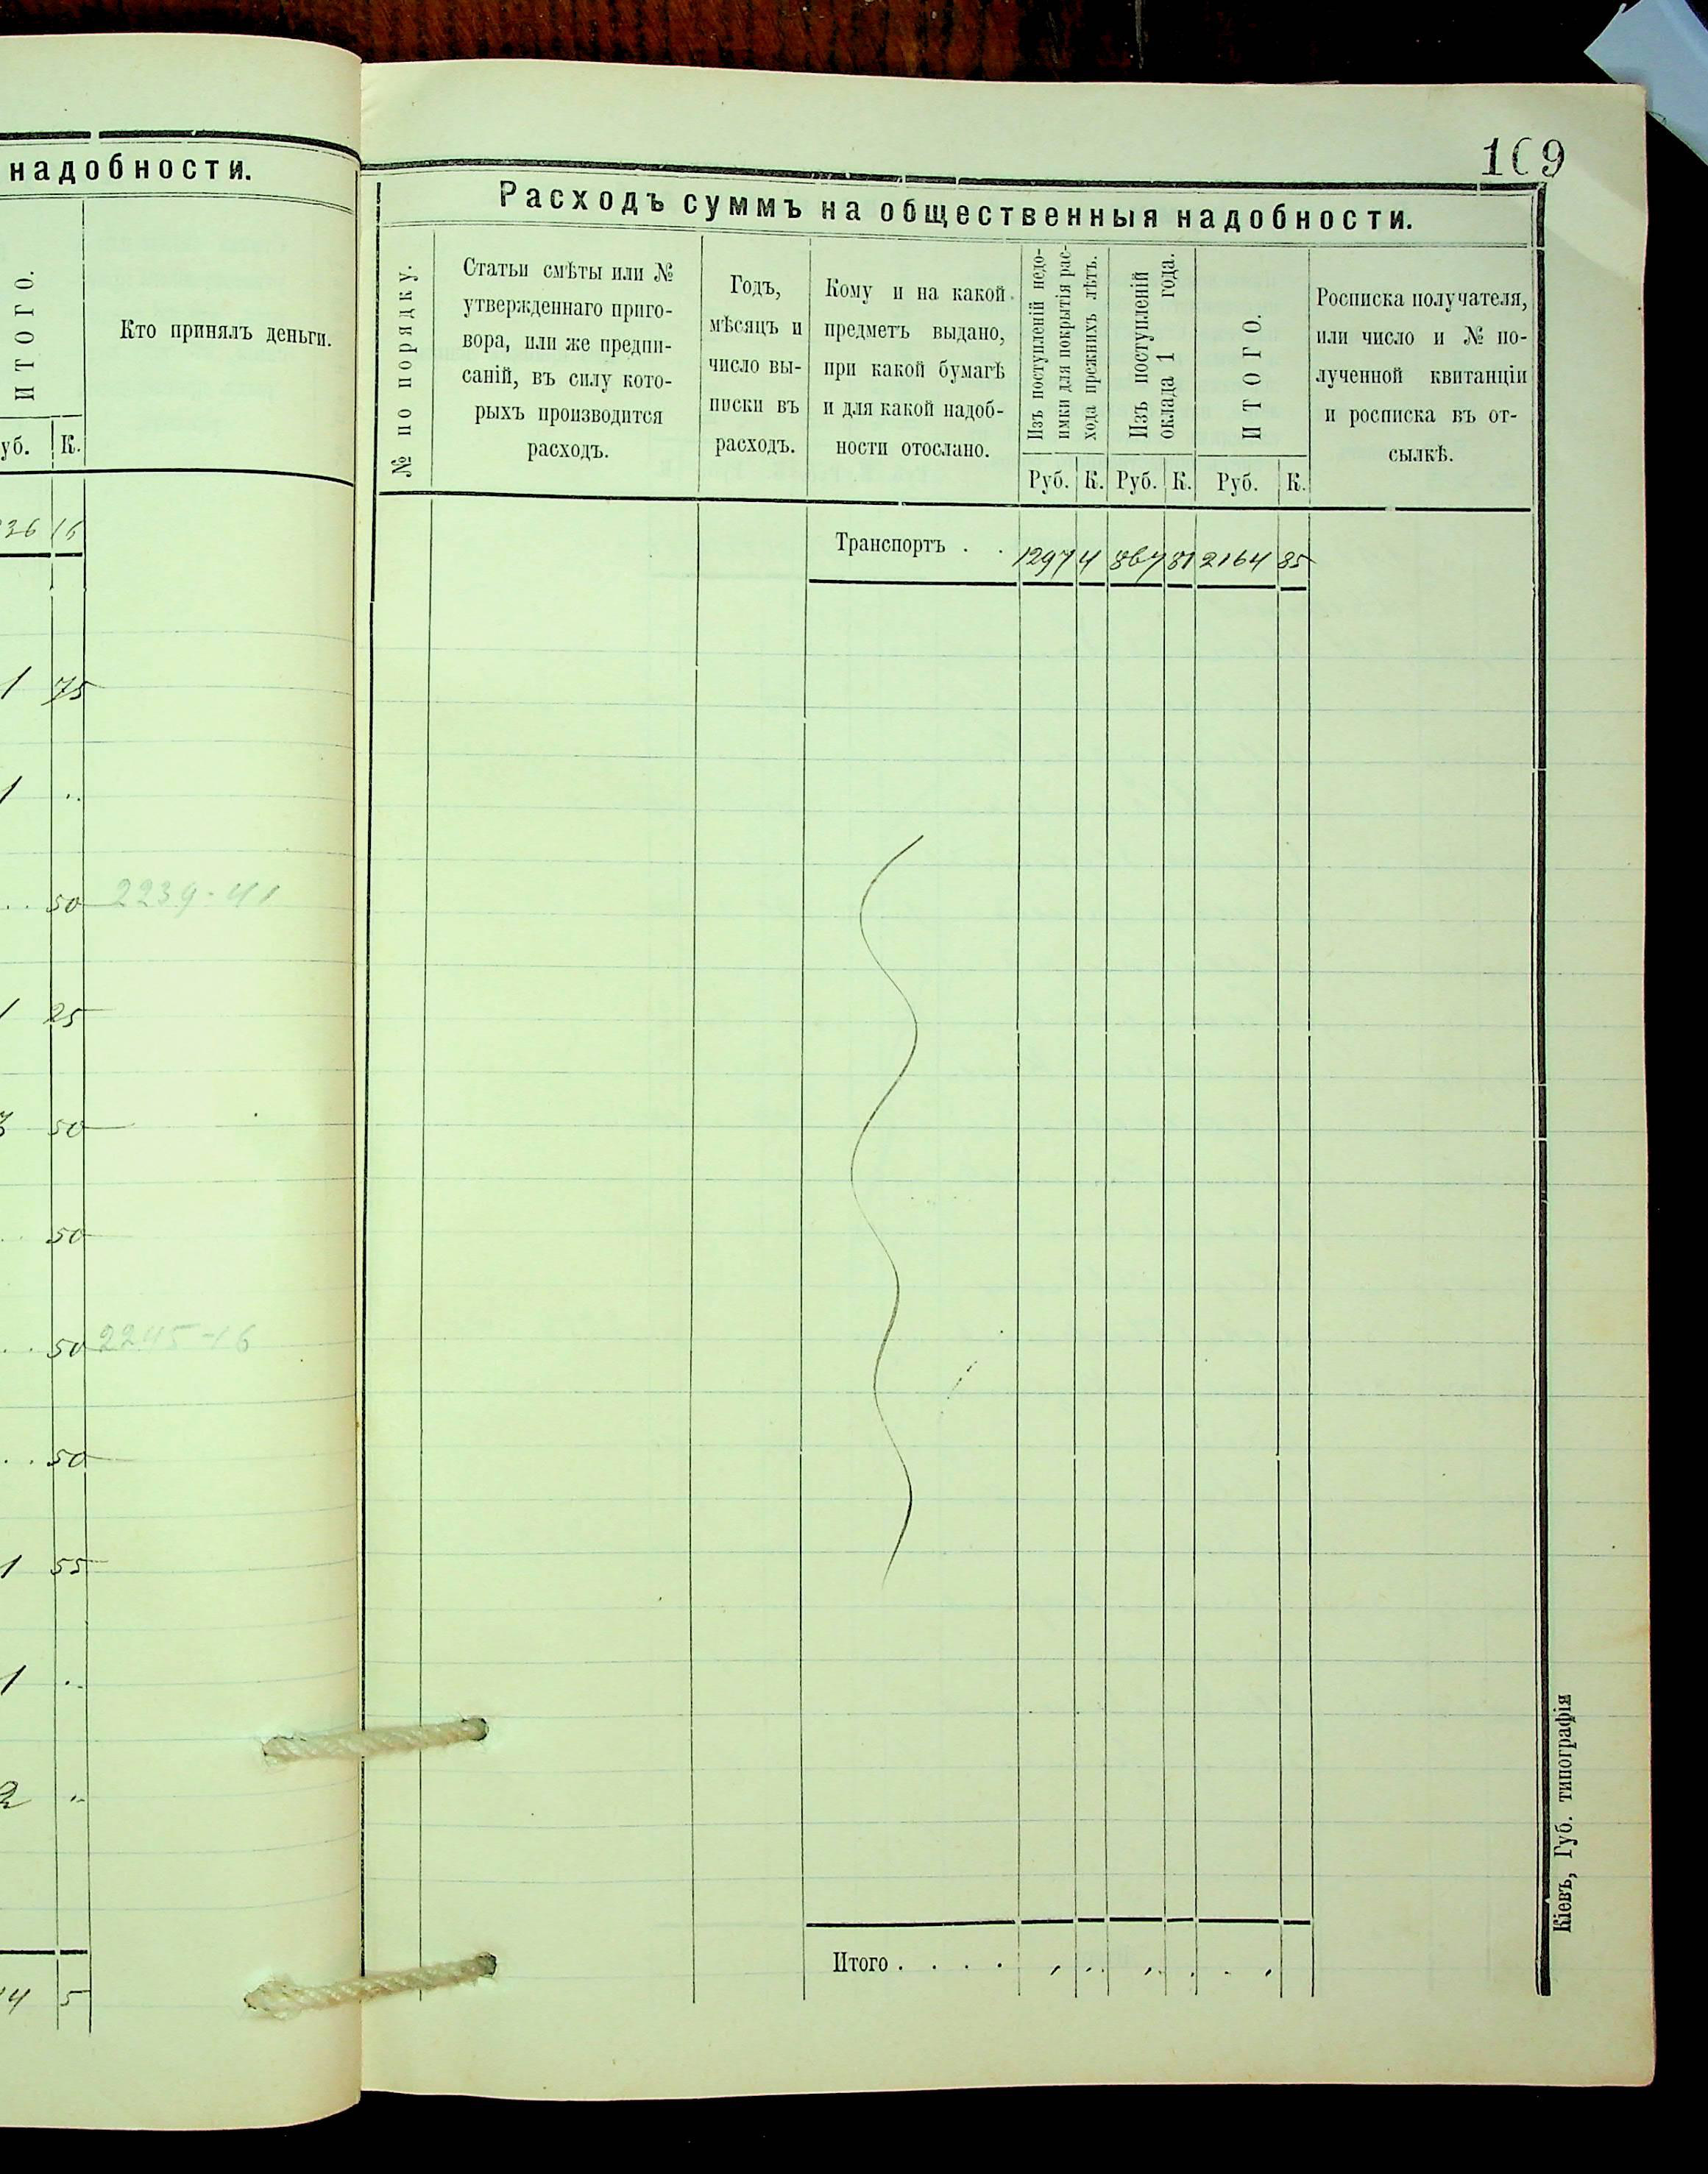 надобности.
ИТОГО.
Кто принялъ деньги.
уб. К.
36 16
1 75
1 ..
.. 50 2239-41
1 25
50
50
.. 50 2245-46
.. 50
1 55
1 ..
2 ..
4 5
109
Расходъ суммъ на общественныя надобности.
№ по порядку.
Статьи смѣты или №
утвержденнаго приго-
вора, или же предпи-
саній, въ силу кото-
рыхъ производится
расходъ.
Годъ,
мѣсяцъ и
число вы-
писки въ
расходъ.
Кому и на какой
предметъ выдано,
при какой бумагѣ
и для какой надоб-
ности отослано.
Изъ поступленій недо-
имки для покрытія рас-
хода прежнихъ лѣтъ.
Изъ поступленій
оклада 1 года.
ИТОГО.
Росписка получателя,
или число и № по-
лученной квитанціи
и росписка въ от-
сылкѣ.
Руб. К. Руб. К. Руб. К.
Транспортъ . . 1297 4 867 81 2164 85
Итого . . . .
Кіевъ, Губ. типографія